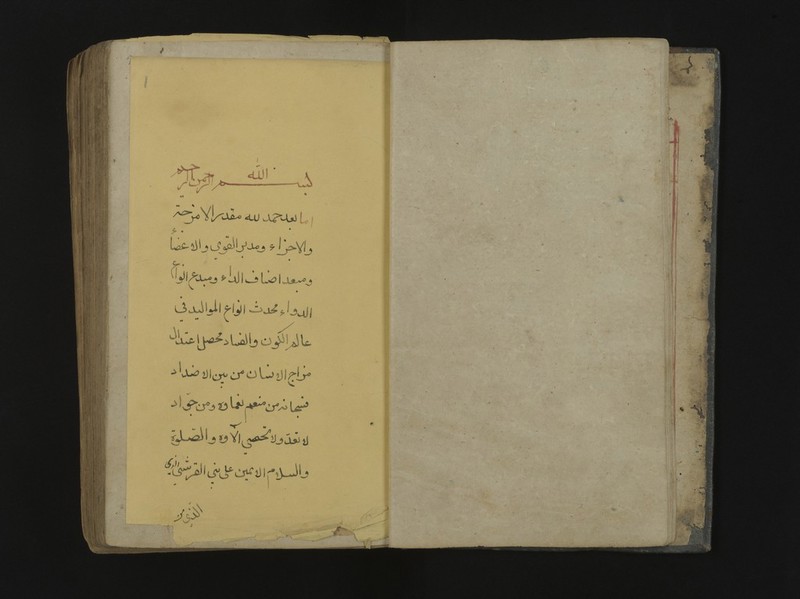 بسم الله الرحمن الرحيم
اما بعد حمد لله مقدر الامزجة
والاجزاء ومدبر القوى والاعضا
ومبعد اصناف الداء ومبدع انواع
الدواء محدث انواع المواليد في
عالم الكون والفساد محصل اعتدال
مزاج الانسان من بين الاضداد
فسبحانه من منعم نعماوه ومن جواد
لا تعد ولا تحصي الاوه والصلوة
والسلام الاتمين على نبي القرشي
الذي من